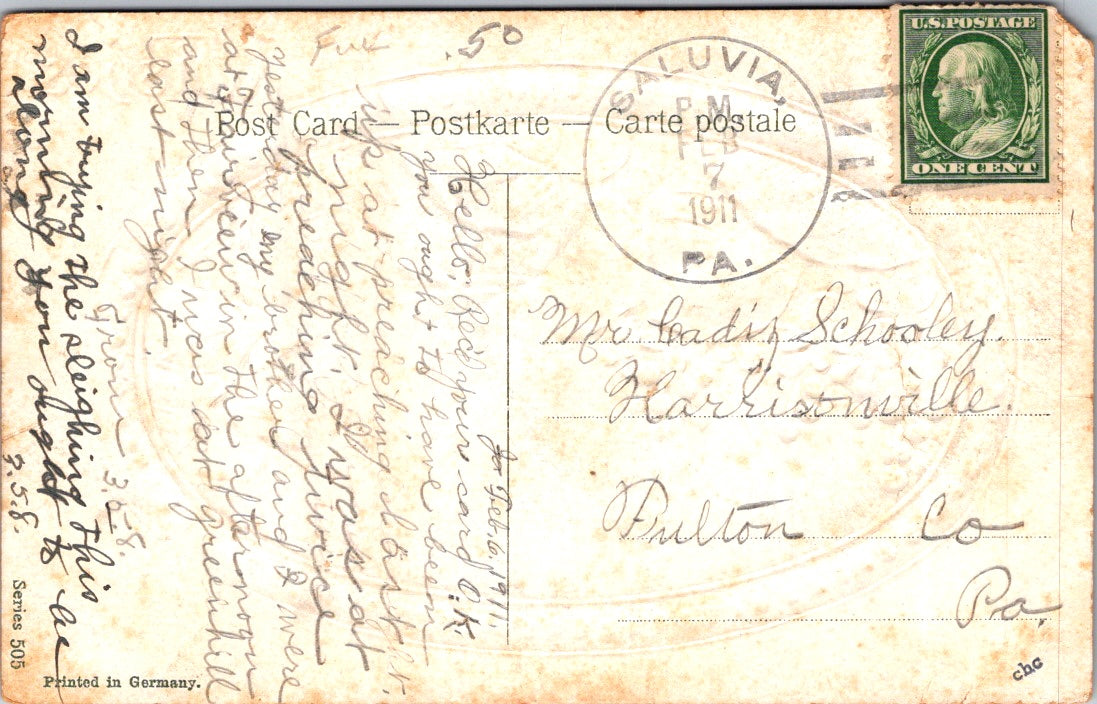 U.S. POSTAGE
ONE CENT
SALUVIA,
P.M.
FEB
7
1911
PA.
.50
Post Card — Postkarte — Carte postale
Mr Cadiz Schooley.
Harrisonville.
Fulton Co
Pa.
Feb. 6, 1911.
Hello; Rec'd yours card O.K.
you ought to have been
up at preaching last
night. I was at
preaching twice
yesterday my brother and I were
at in the afternoon
and then I was at greenhill
last-night.
From 3.5-8.
I am trying the sleighing this
morning you ought to be
along
3.5-8.
Series 505
Printed in Germany.
chc